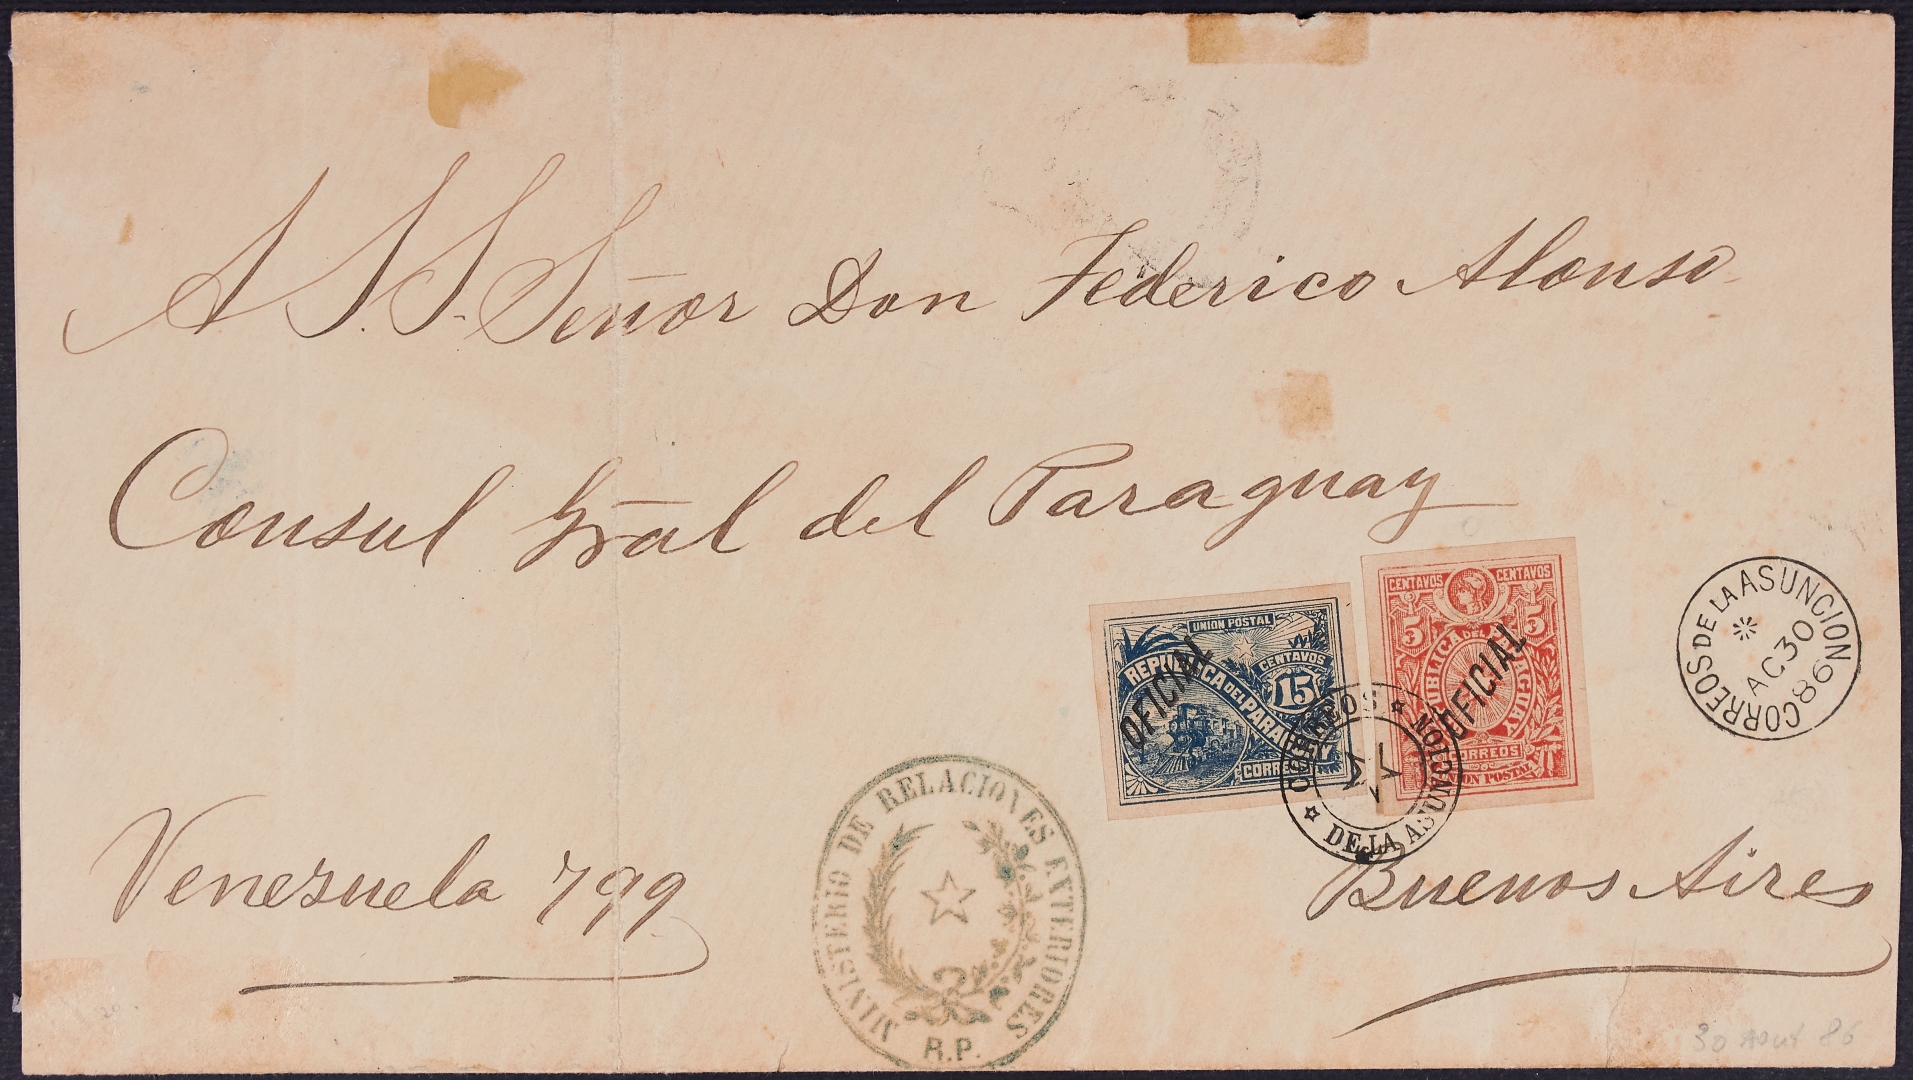 A S. S. Señor Don Federico Alonso
Consul Gral del Paraguay
CENTAVOS CENTAVOS
5 5
REPUBLICA DEL PARAGUAY
OFICIAL
CORREOS
UNION POSTAL
UNION POSTAL
REPUBLICA DEL PARAGUAY
CENTAVOS
15
OFICIAL
CORREOS
CORREOS DE LA ASUNCION
AG 30
86
CORREOS
DE LA ASUNCION
MINISTERIO DE RELACIONES EXTERIORES
R.P.
Venezuela 799
Buenos Aires
30 Aout 86